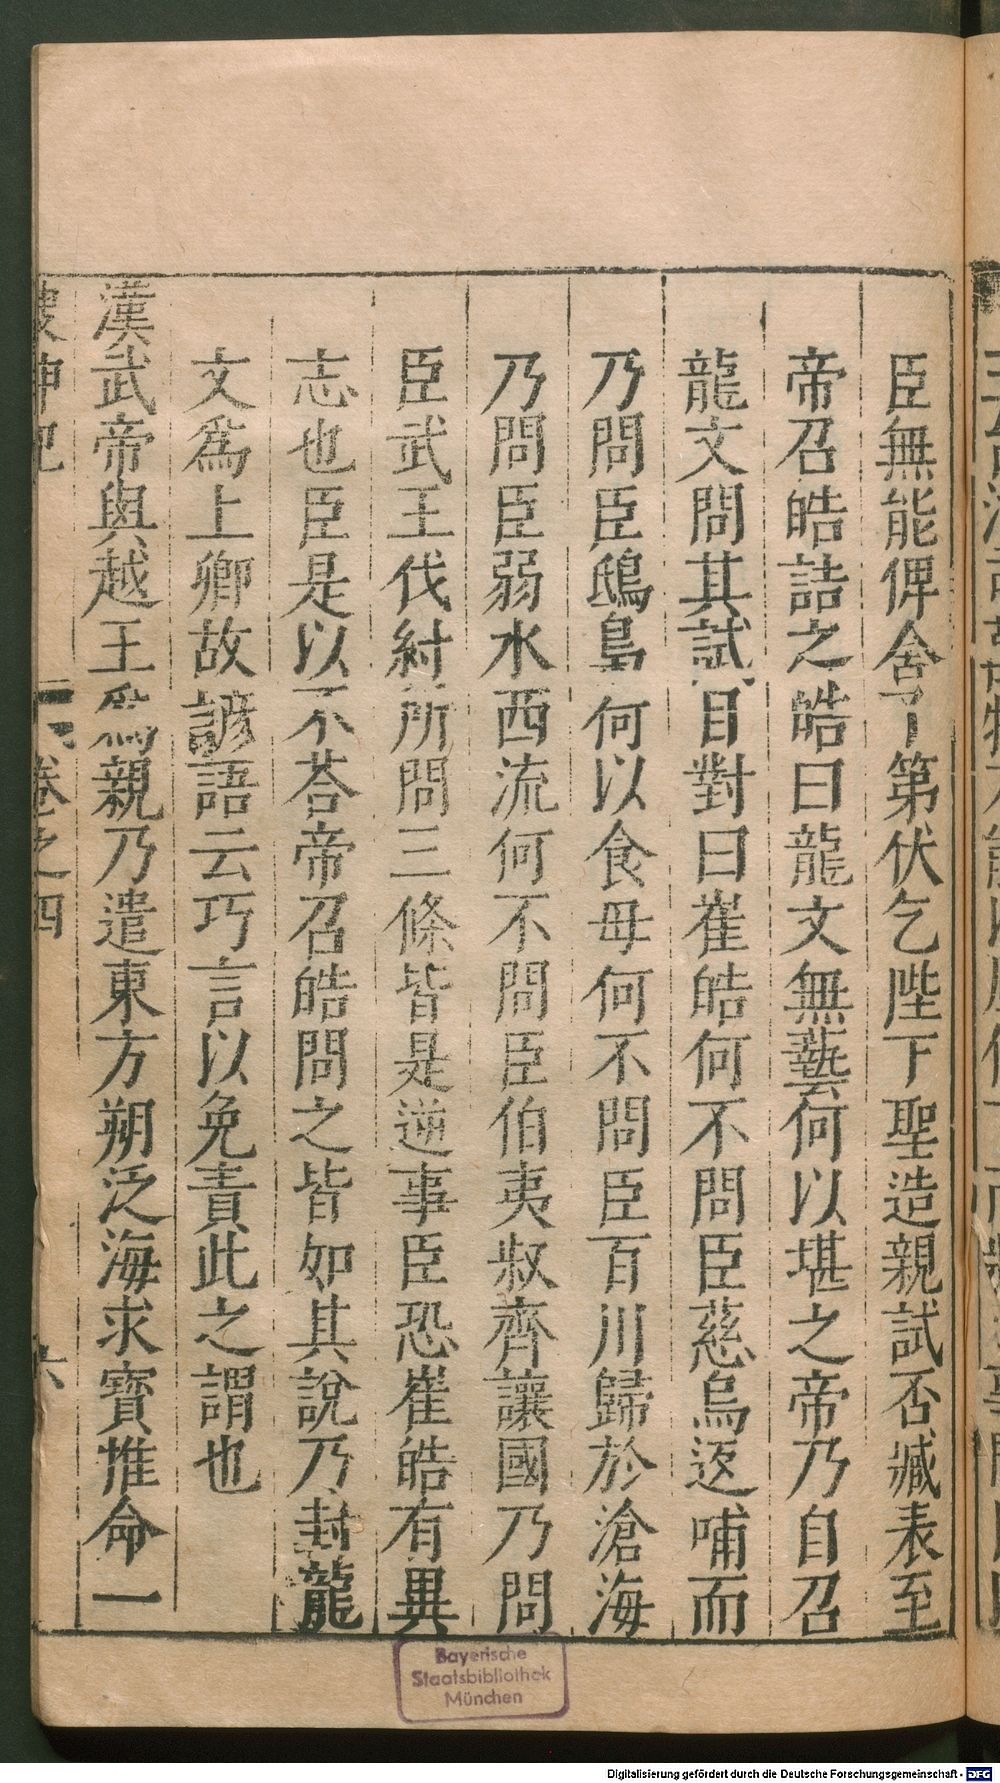 臣無能俾舍了第伏乞陛下聖造親試否臧表至
帝召皓詰之皓曰龍文無藝何以堪之帝乃自召
龍文問其試目對曰崔皓何不問臣慈烏返哺而
乃問臣鴟梟何以食母何不問臣百川歸於滄海
乃問臣弱水西流何不問臣伯夷叔齊讓國乃問
臣武王伐紂所問三條皆是逆事臣恐崔皓有異
志也臣是以不荅帝召皓問之皆如其說乃封龍
文爲上卿故諺語云巧言以免責此之謂也
漢武帝與越王爲親乃遣東方朔泛海求寶惟命一
搜神記
卷之四
六
Bayerische
Staatsbibliothek
München
Digitalisierung gefördert durch die Deutsche Forschungsgemeinschaft - DFG